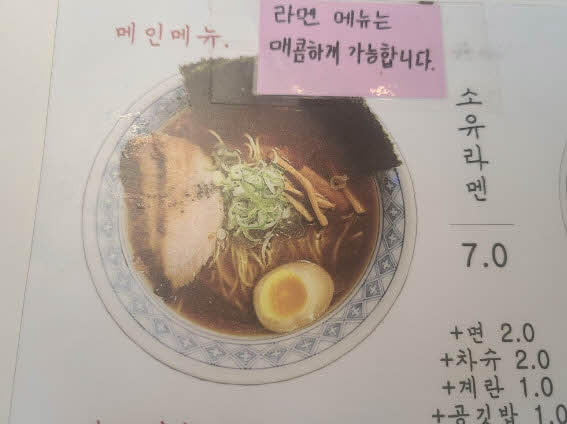 메인메뉴.
라멘 메뉴는
매콤하게 가능합니다.
소유라멘
7.0
+면 2.0
+차슈 2.0
+계란 1.0
+공깃밥 1.0